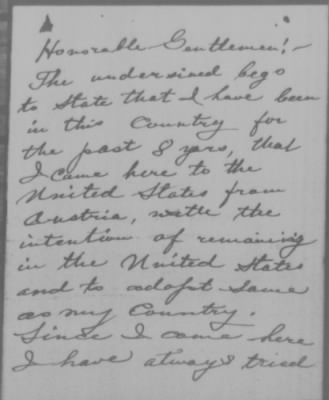 Honorable Gentlemen!-
The undersined begs
to State that I have been
in this Country for
the past 8 yars, that
I came here to the
United States from
Austria, with the
intention of remaining
in the United States
and to adopt same
as my Country.
Since I came here
I have always tried